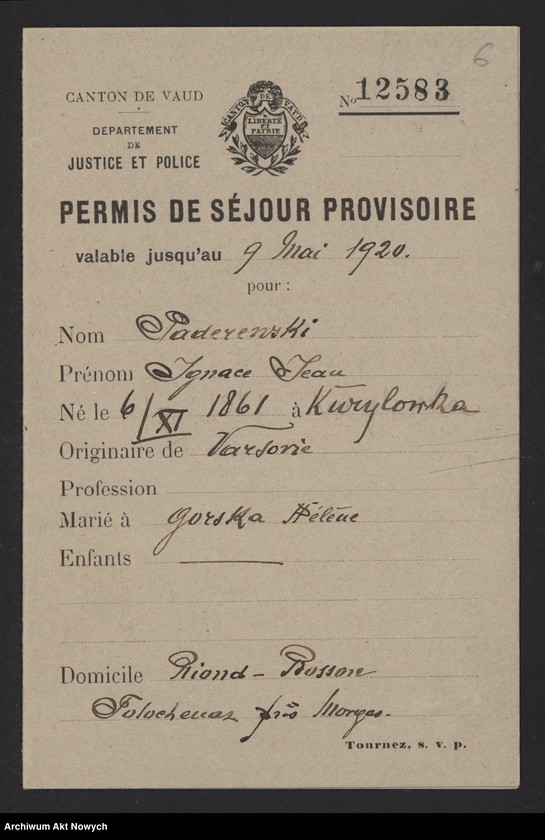 6
CANTON DE VAUD
DEPARTEMENT
DE
JUSTICE ET POLICE
CANTON DE VAUD
LIBERTÉ
ET
PATRIE
No 12583
PERMIS DE SÉJOUR PROVISOIRE
valable jusqu'au 9 Mai 1920.
pour :
Nom Paderewski
Prénom Ignace Jean
Né le 6/XI 1861 à Kurylowka
Originaire de Varsovie
Profession
Marié à Gorska Hélène
Enfants —
Domicile Riond-Bosson
Tolochenaz près Morges.
Tournez, s. v. p.
Archiwum Akt Nowych